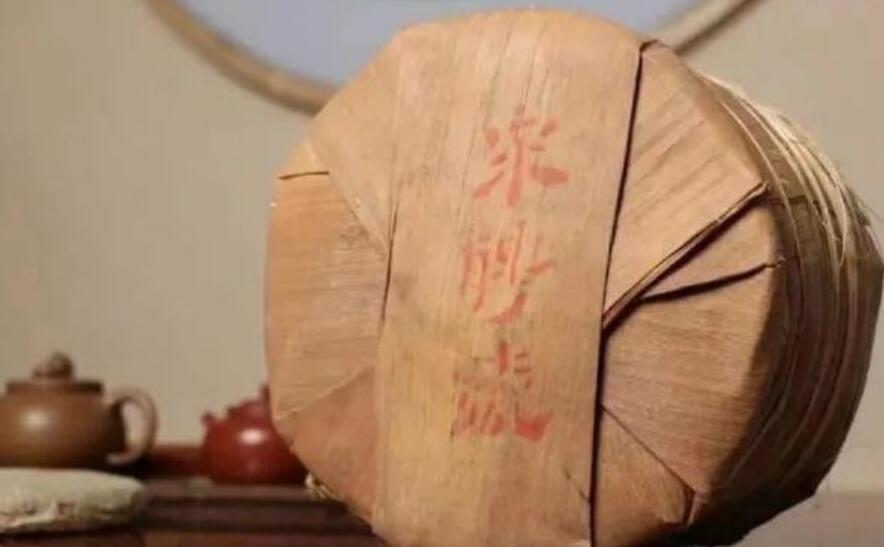 宋聘號